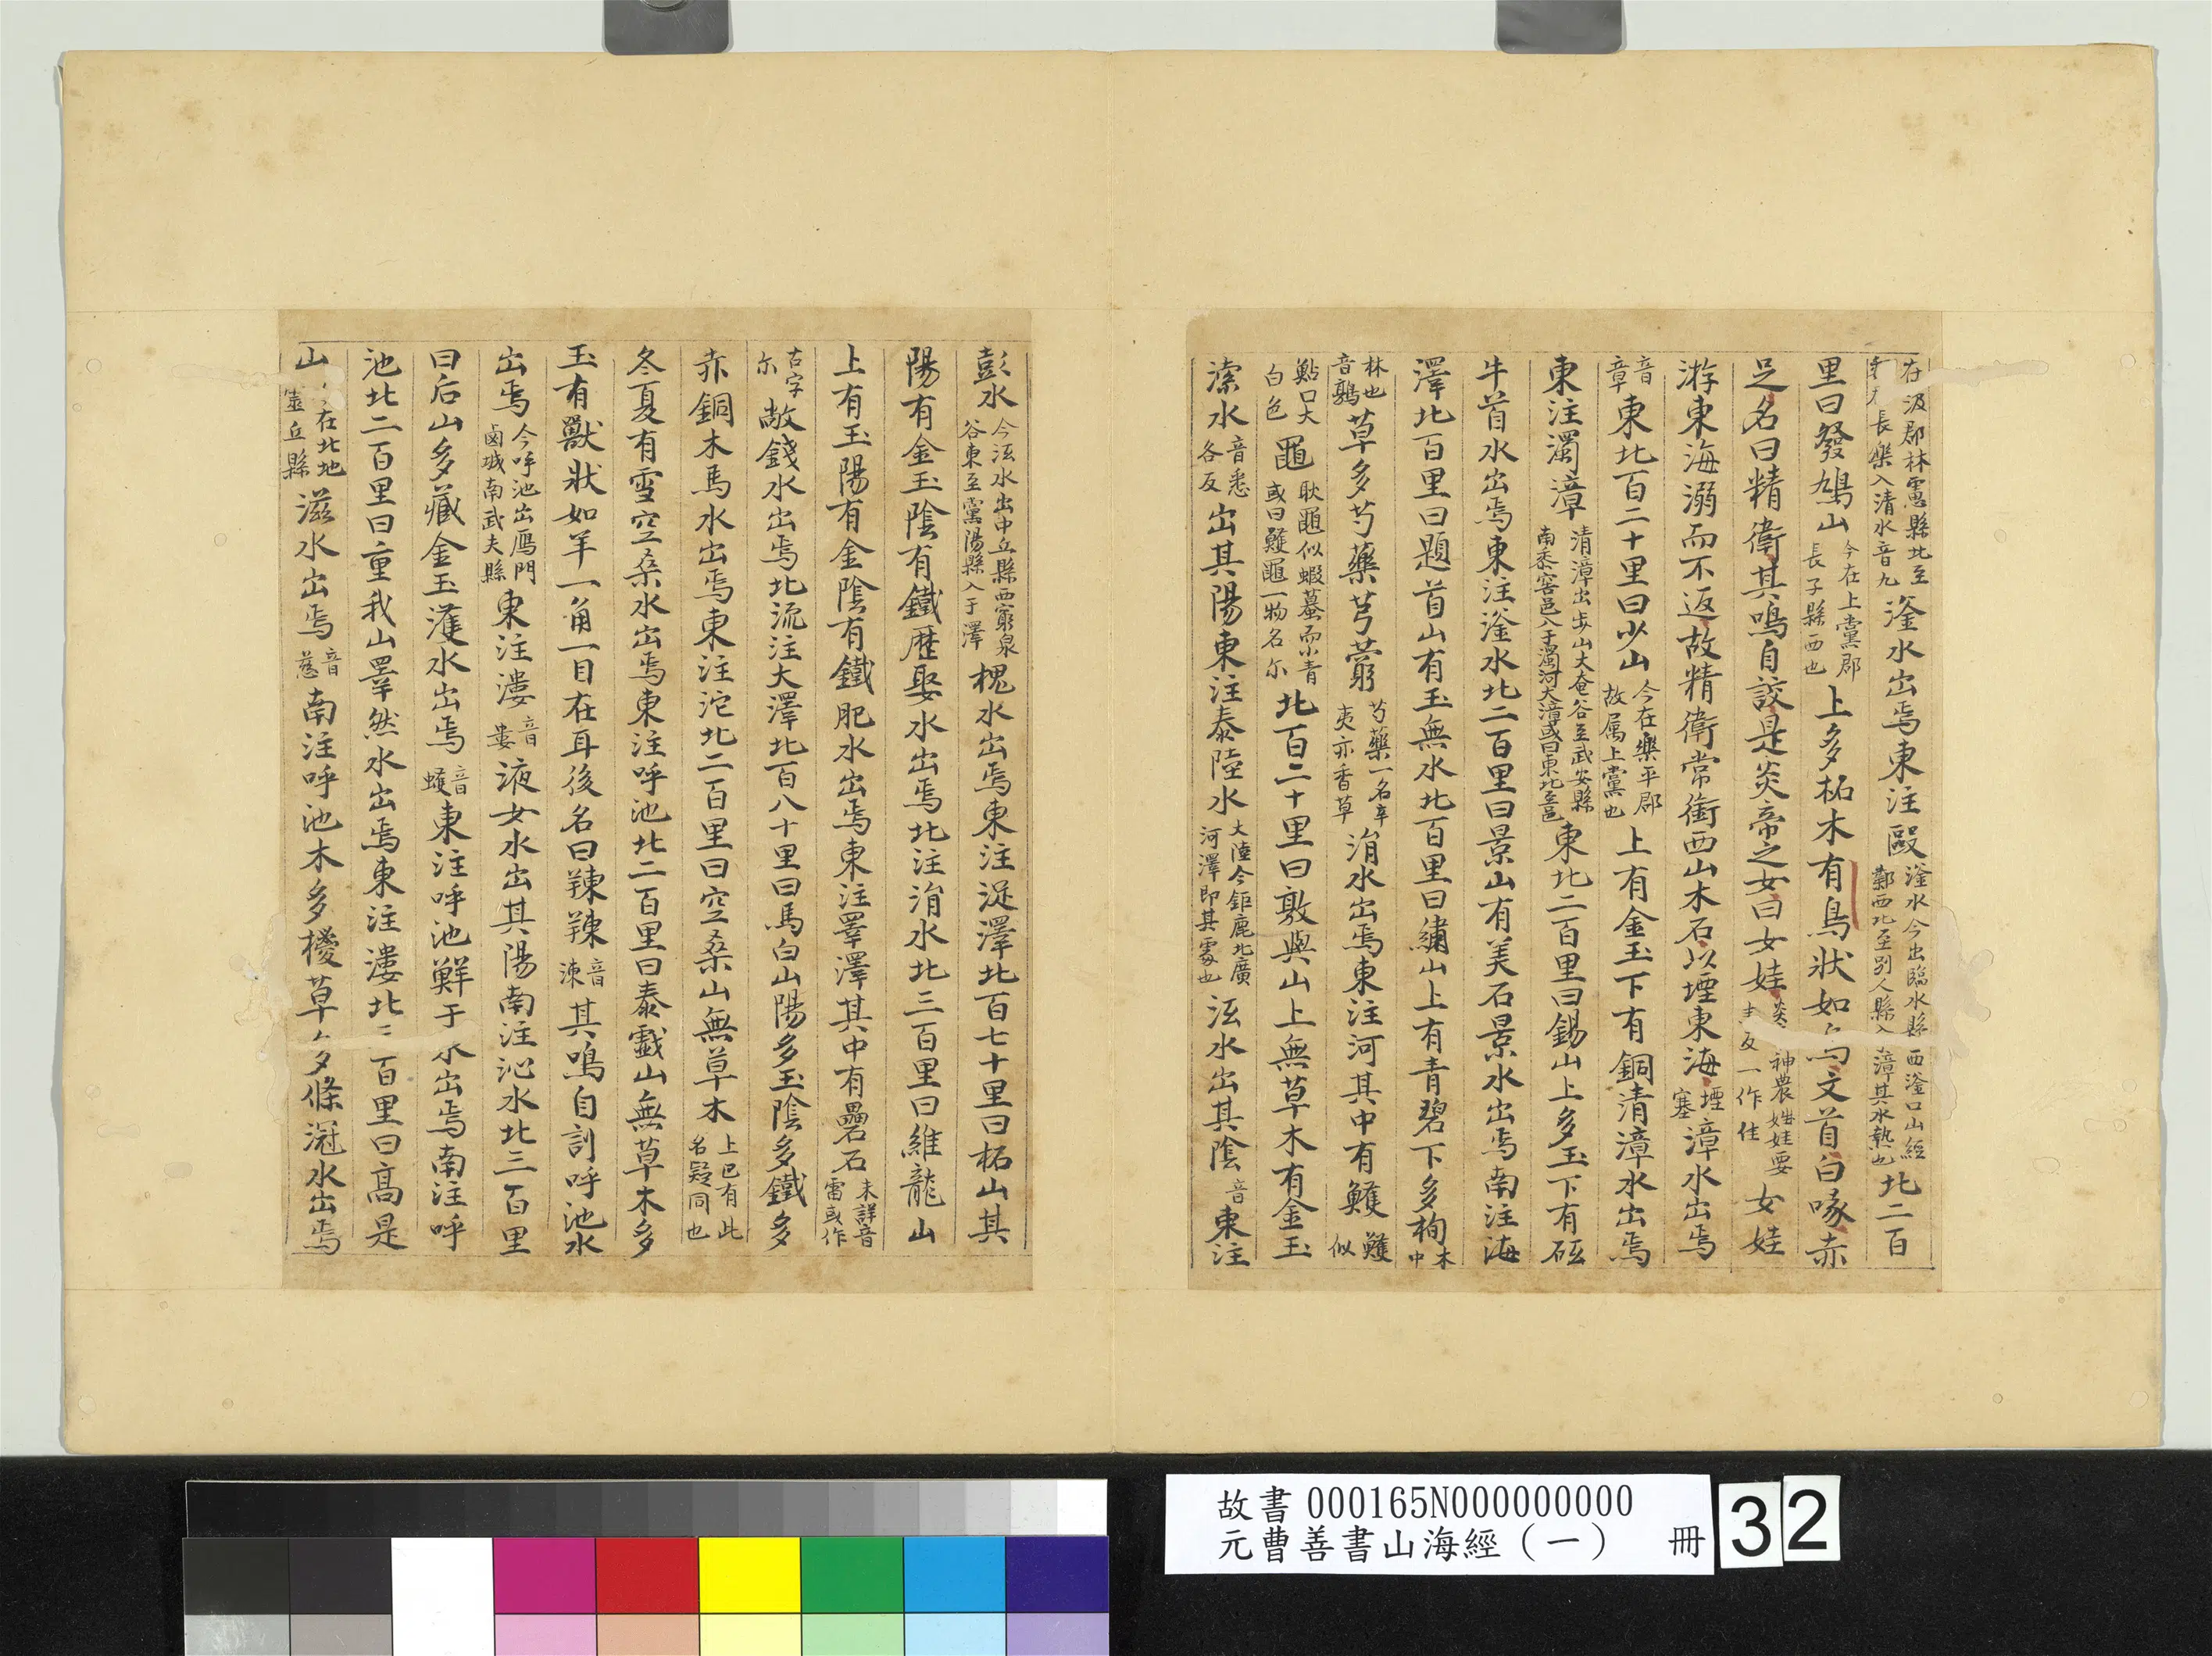 在汲郡林慮縣北至長樂入清水音九滏水出焉東注歐滏水今出臨水縣西滏口山經鄴西北至別人縣入漳其水熱也北二百
里曰發鳩山今在上黨郡長子縣西也上多柘木有鳥狀如文首白喙赤
足名曰精衛其鳴自詨是炎帝之女曰女娃神農姓娃要反一作佳女娃
游東海溺而不返故精衛常銜西山木石以堙東海堙塞漳水出焉
音章東北百二十里曰少山今在樂平郡故属上黨也上有金玉下有銅清漳水出焉
東注濁漳清漳出少山大黽谷至武安縣南黍窖邑入于濁河大漳或曰東北至邑東北二百里曰錫山上多玉下有砥
牛首水出焉東注滏水北二百里曰景山有美石景水出焉南注海
澤北百里曰題首山有玉無水北百里曰繡山上有青碧下多栒木中
林也音鶉草多芍藥芎藭芍藥一名辛夷亦香草洧水出焉東注河其中有鱯鱯似
鮎口大白色黽耿黽似蝦蟇而小青或曰鱯黽一物名尔北百二十里曰敦與山上無草木有金玉
溹水音悉各反出其陽東注泰陸水大陸今鉅鹿北廣河澤即其䖏也泜水出其陰音東注
彭水今泜水出中丘縣西窮泉谷東至䣊陽縣入于澤槐水出焉東注泜澤北百七十里曰柘山其
陽有金玉陰有鐵歷娶水出焉北注洧水北三百里曰維龍山
上有玉陽有金陰有鐵肥水出焉東注睪澤其中有礨石未詳音雷或作
古字尔敞錢水出焉北流注大澤北百八十里曰馬白山陽多玉陰多鐵多
赤銅木馬水出焉東注沱北二百里曰空桑山無草木上已有此名疑同也
冬夏有雪空桑水出焉東注呼池北二百里曰泰戲山無草木多
玉有獸狀如羊一角一目在耳後名曰䍶䍶音涷其鳴自訓呼池水
出焉今呼池出鴈門鹵城南武夫縣東注漊音婁液女水出其陽南注沁水北三百里
曰石山多藏金玉濩水出焉音蠖東注呼池鮮于水出焉南注呼
池北二百里曰童戎山睪然水出焉東注漊北三百里曰高是
山在北地靈丘縣滋水出焉音慈南注呼池木多椶草多條滱水出焉
故書 000165N000000000
元曹善書山海經（一） 冊 32